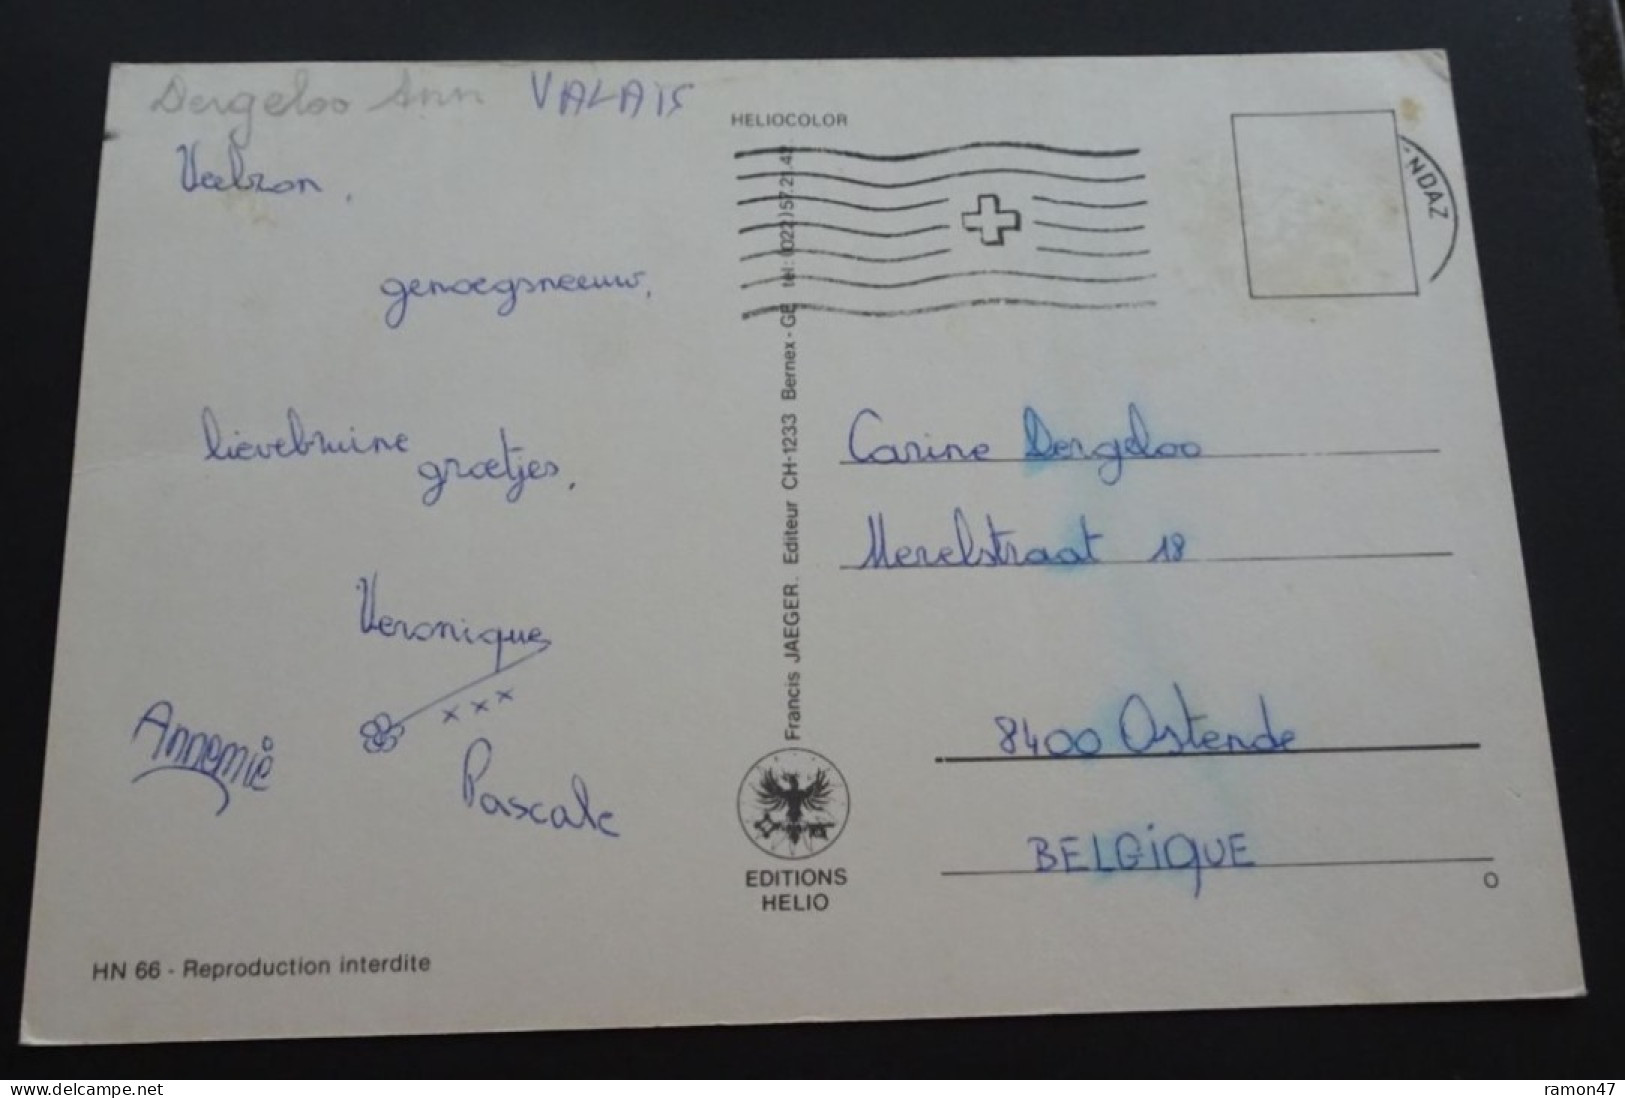 Dergeloo Ann VALAIS
Veelzon,
genoegsneeuw,
lievebruine
groetjes,
Veronique
x x x
Annemie
Pascale
HN 66 - Reproduction interdite
HELIOCOLOR
Francis JAEGER. Editeur CH-1233 Bernex - GE tel: (022) 57.21.42
EDITIONS
HELIO
NDAZ
Carine Dergeloo
Merelstraat 18
8400 Ostende
BELGIQUE
www.delcampe.net
ramon47